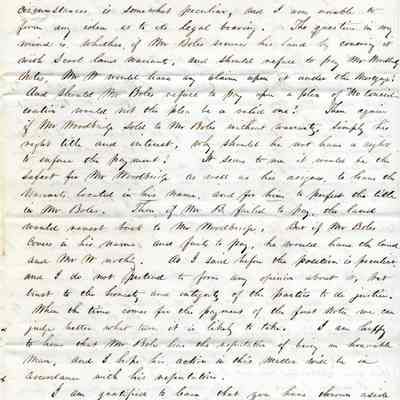 circumstances is somewhat peculiar, and I am unable to
form any idea as to its legal bearing. The question in my
mind is, whether, if Mr Boles secures his land by covering it
with Scrol land Warrant, and should refuse to pay Mr Woodbridge
Notes, Mr W would have any claim upon it under the Mortgage?
And should Mr Boles refuse to pay upon a plea of "No Consid-
eration" would not the plea be a valid one? Then again
if Mr Woodbridge sold to Mr Boles without warranty, simply his
right title and interest, why should he not have a right
to enforce the payment? It seems to me it would be the
safest for Mr Woodbridge as well as his assigns, to have the
Warrants located in his name, and for him to perfect the title
in Mr Boles. Then if Mr B. failed to pay, the land
would revert back to Mr Woodbridge. But if Mr Boles
Covers in his name, and fails to pay, he would have the land
and Mr W nothing. As I said before the position is peculiar
and I do not pretend to form any opinion about it, but
trust to the honesty and integrity of the parties to do justice.
When the time comes for the payment of the first Note we can
judge better what turn it is likely to take. I am happy
to hear that Mr Boles has the reputation of being an honorable
Man, and I hope his action in this matter will be in
accordance with his reputation.
I am gratified to learn that you have thrown aside